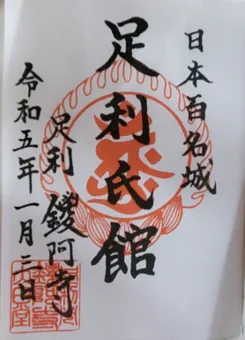 日本百名城
足利氏館
足利 鑁阿寺
令和五年一月二日